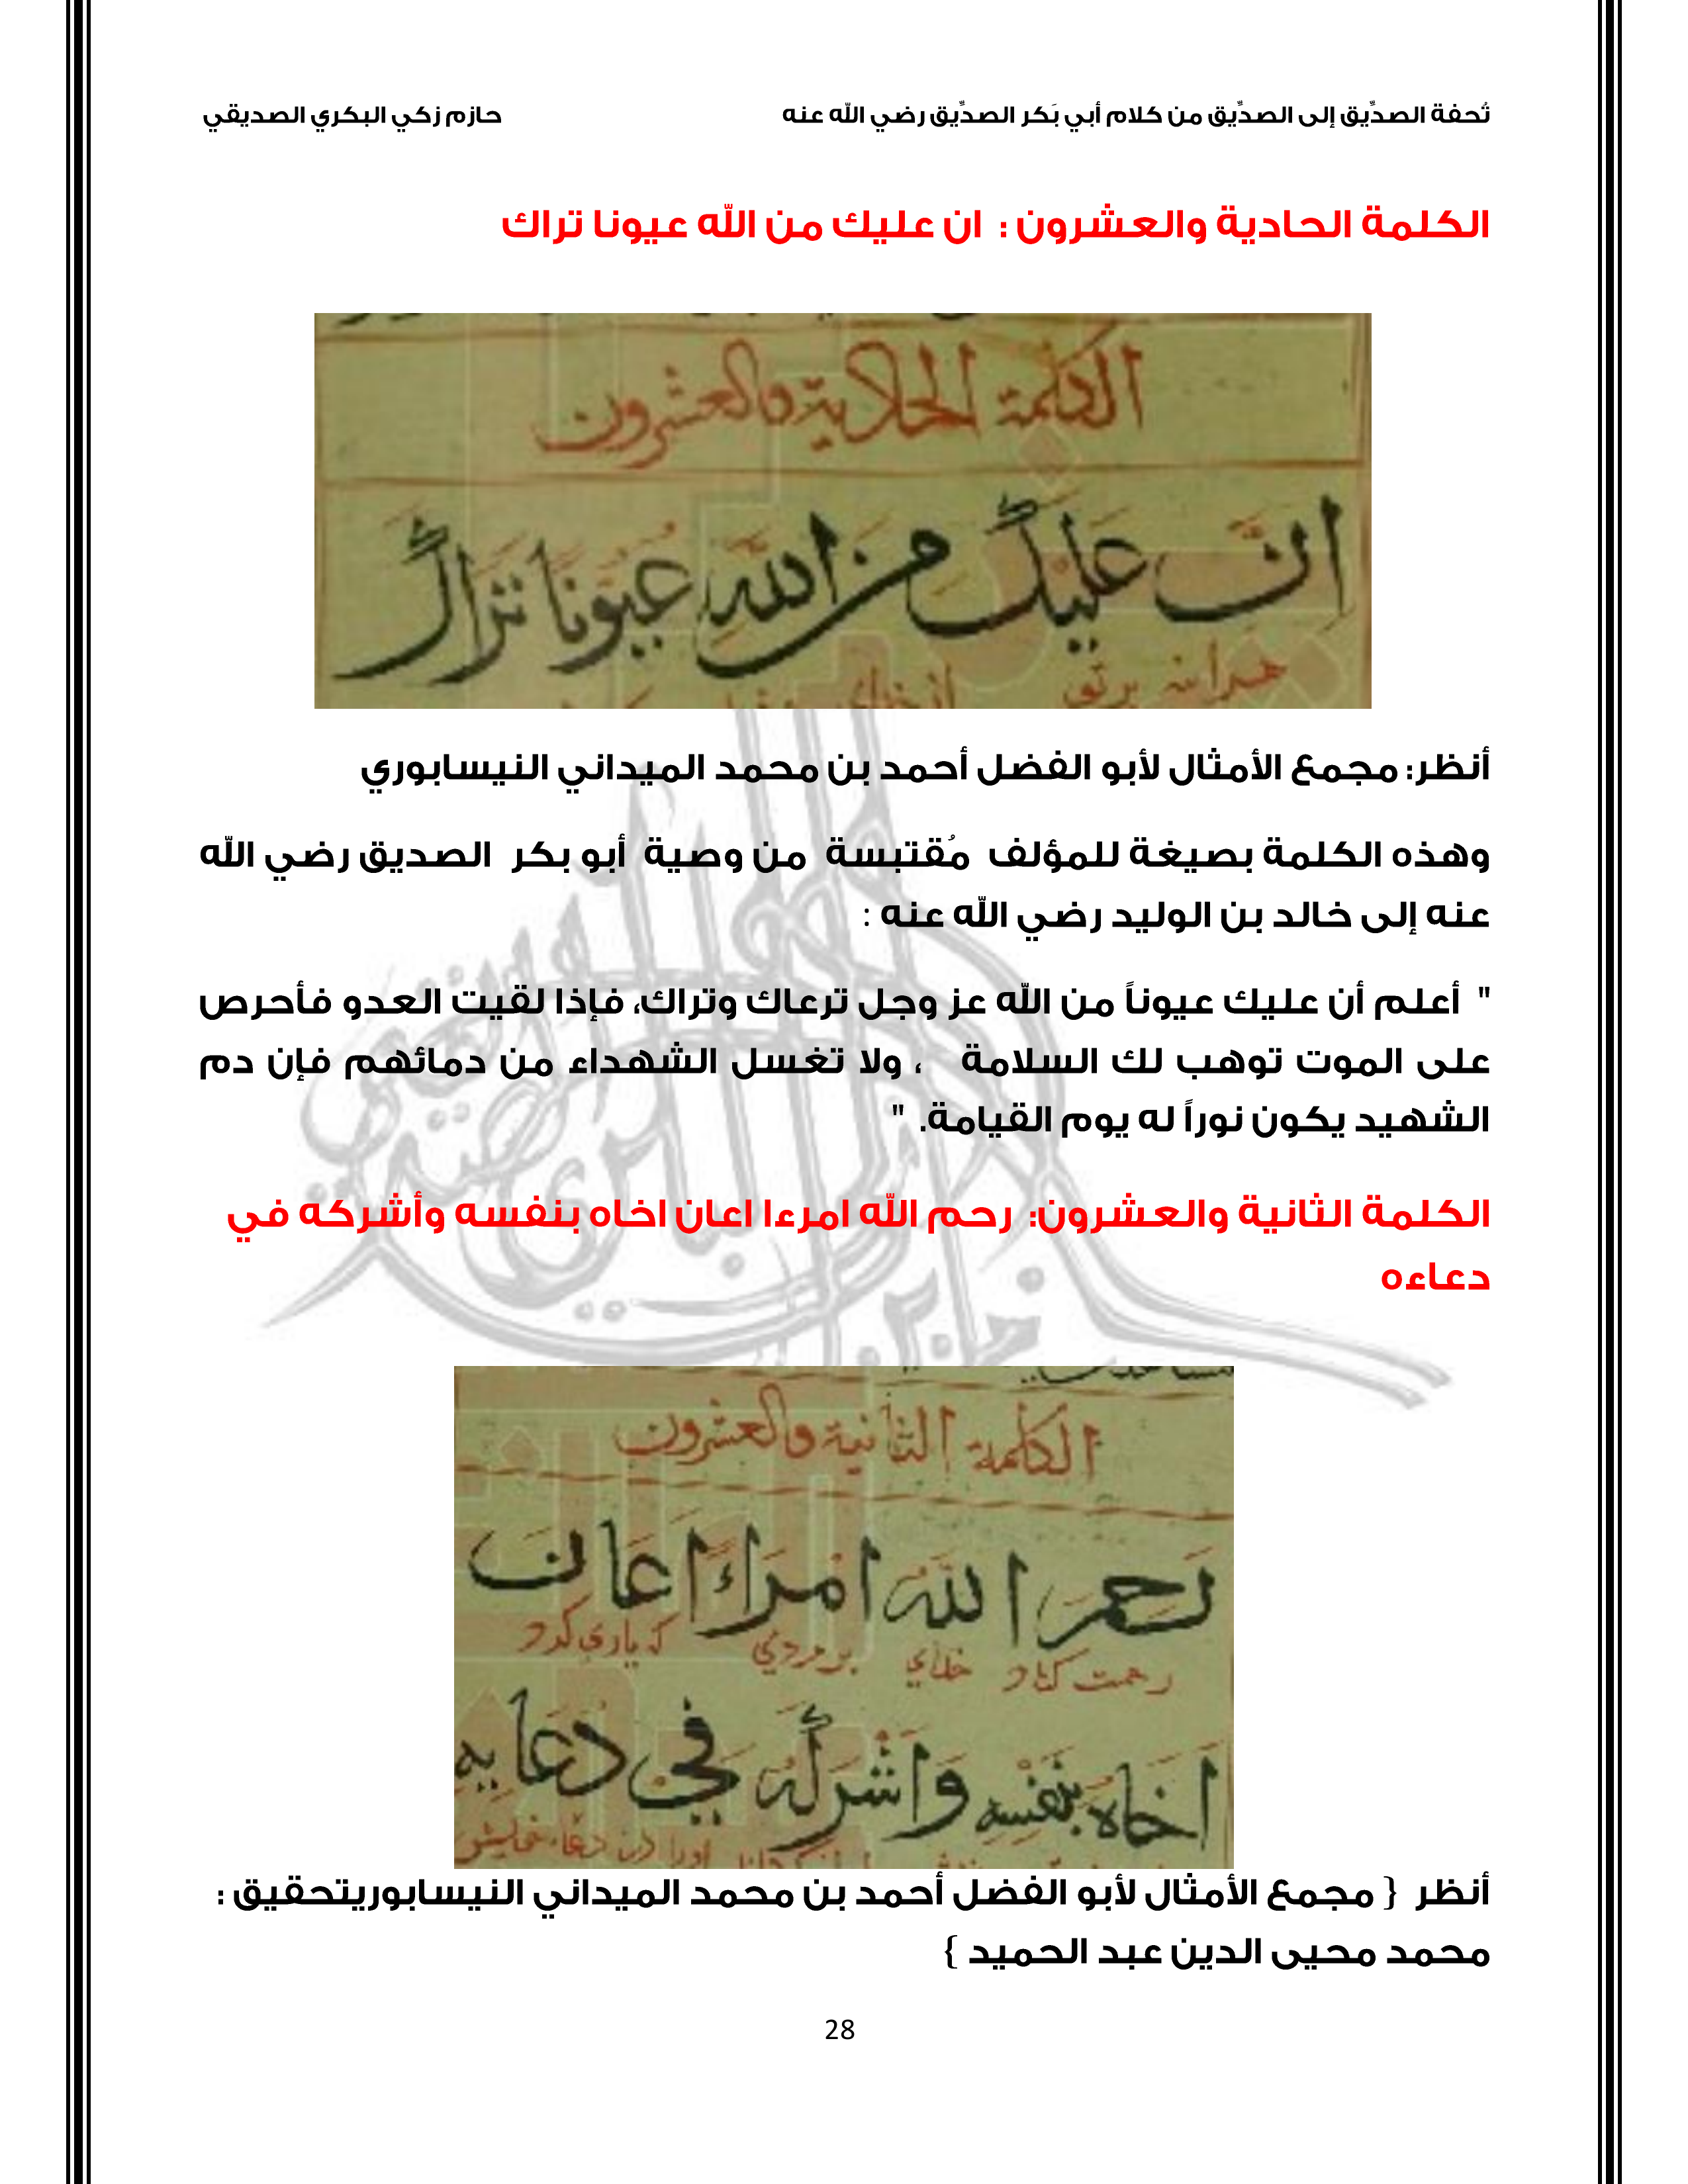 تُحفة الصدِّيق إلى الصدِّيق من كلام أبي بَكر الصدِّيق رضي الله عنه حازم زكي البكري الصديقي
الكلمة الحادية والعشرون : ان عليك من الله عيونا تراك
الكلمة الحادية والعشرون
انَّ عليك من الله عيونا تراك
هر اينه بر تو از خدای
أنظر: مجمع الأمثال لأبو الفضل أحمد بن محمد الميداني النيسابوري
وهذه الكلمة بصيغة للمؤلف مُقتبسة من وصية أبو بكر الصديق رضي الله
عنه إلى خالد بن الوليد رضي الله عنه :
" أعلم أن عليك عيوناً من الله عز وجل ترعاك وتراك، فإذا لقيت العدو فأحرص
على الموت توهب لك السلامة ، ولا تغسل الشهداء من دمائهم فإن دم
الشهيد يكون نوراً له يوم القيامة. "
الكلمة الثانية والعشرون: رحم الله امرءا اعان اخاه بنفسه وأشركه في
دعاءه
الكلمة الثانية والعشرون
رَحِمَ الله امْرَاءً اَعَانَ
رحمت كناد خداي بر مردي كه ياري كرد
اَخَاهُ بِنَفْسِهِ وَاَشْرَكَهُ فِي دُعَايِهِ
أنظر { مجمع الأمثال لأبو الفضل أحمد بن محمد الميداني النيسابوريتحقيق :
محمد محيى الدين عبد الحميد }
28